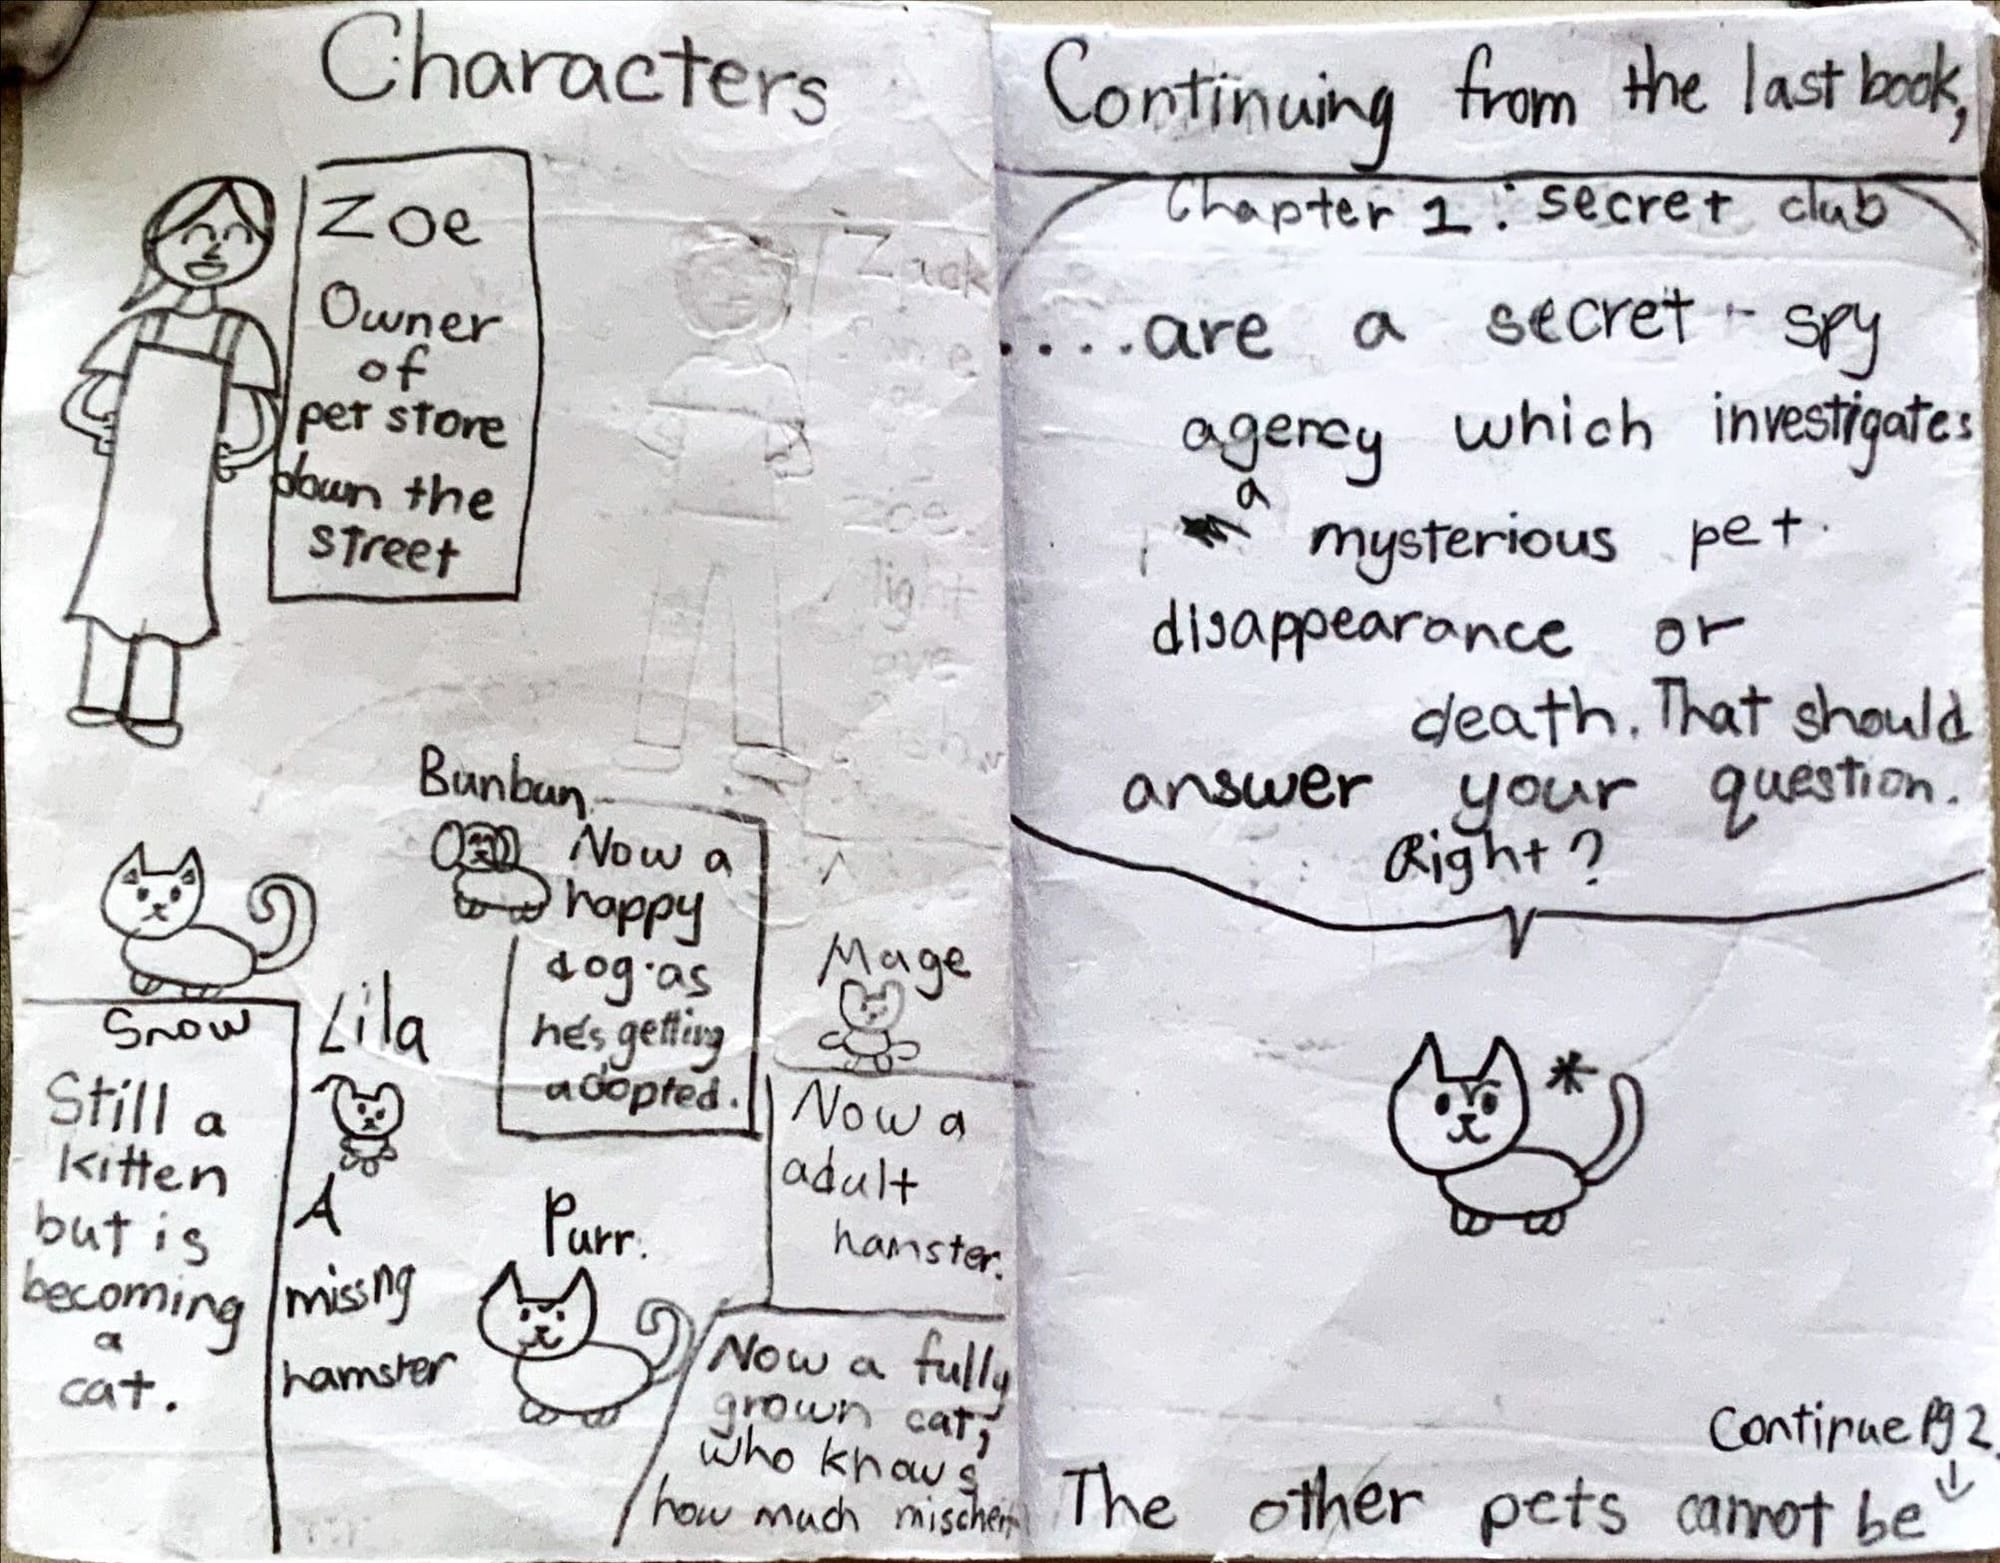 Characters
Zoe
Owner
of
pet store
down the
street
Bunbun
Now a
happy
dog as
he's getting
adopted.
Snow
Still a
kitten
but is
becoming
a
cat.
Lila
A
missng
hamster
Mage
Now a
adult
hamster.
Purr.
Now a fully
grown cat,
who knows
how much mischeif
Zack
Zoe
light
Continuing from the last book,
Chapter 1: secret club
....are a secret - spy
agency which investigates
a mysterious pet
disappearance or
death. That should
answer your question.
Right?
*
Continue Pg 2
The other pets cannot be